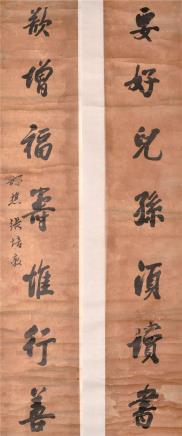 要好兒孫須讀書
欲增福壽惟行善
張培敦